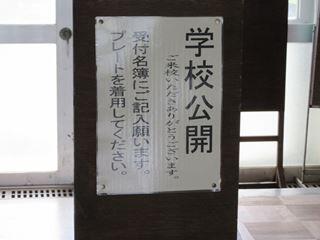 学校公開
ご来校いただきありがとうございます。
受付名簿にご記入願います。
プレートを着用してください。